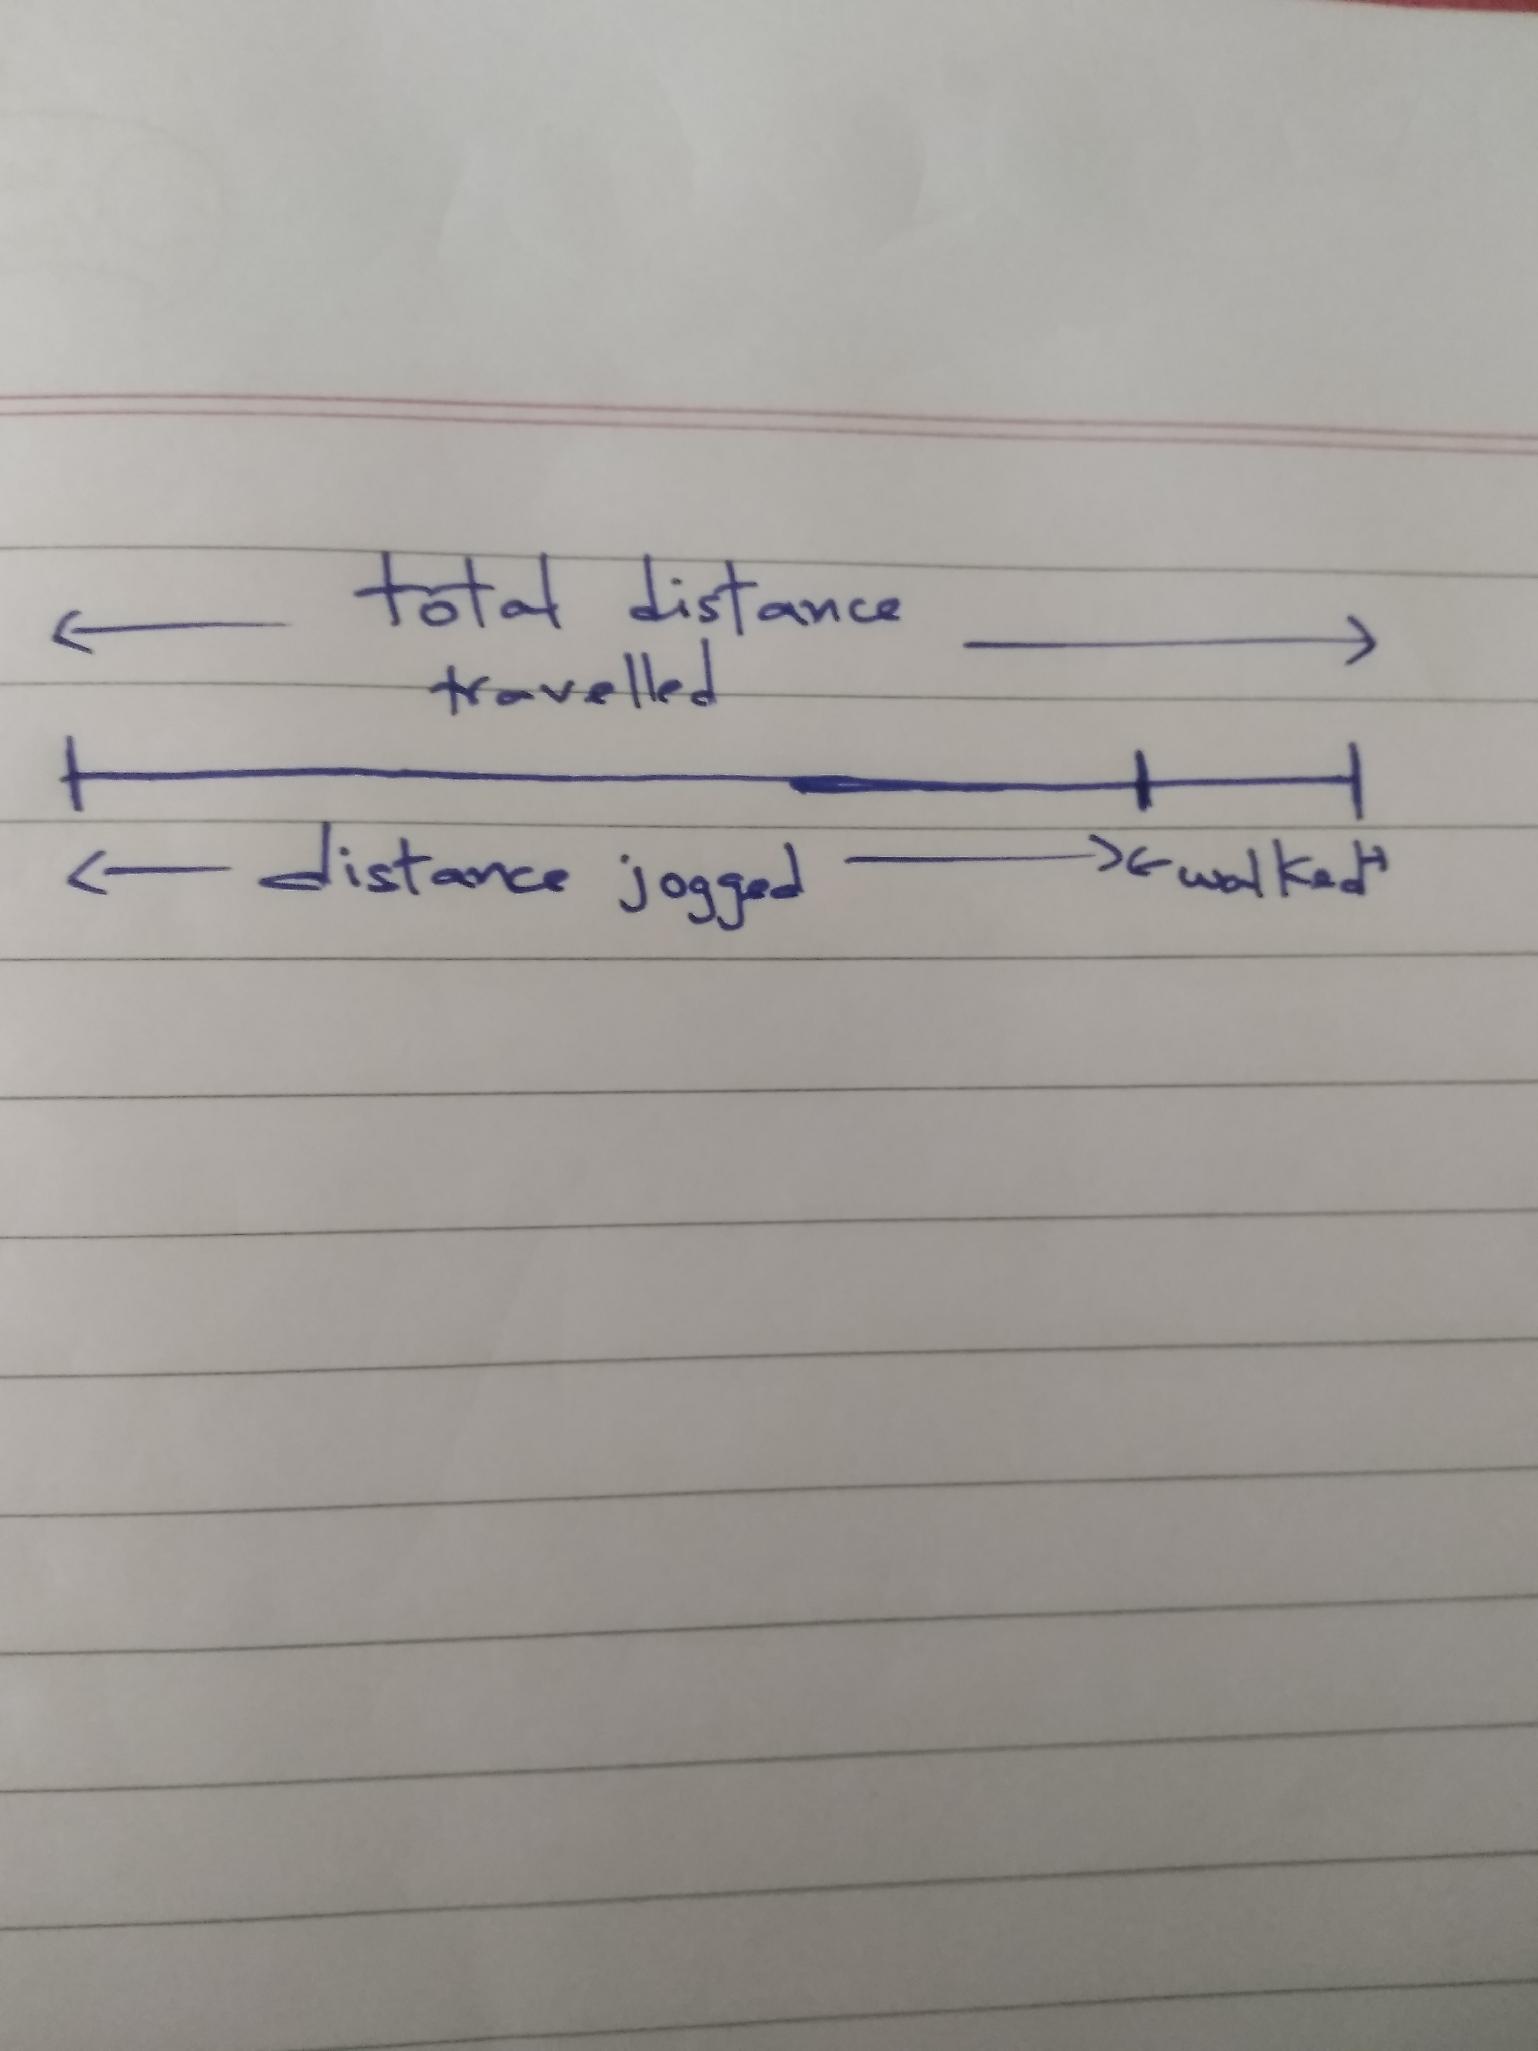 total distance
travelled
distance jogged walked